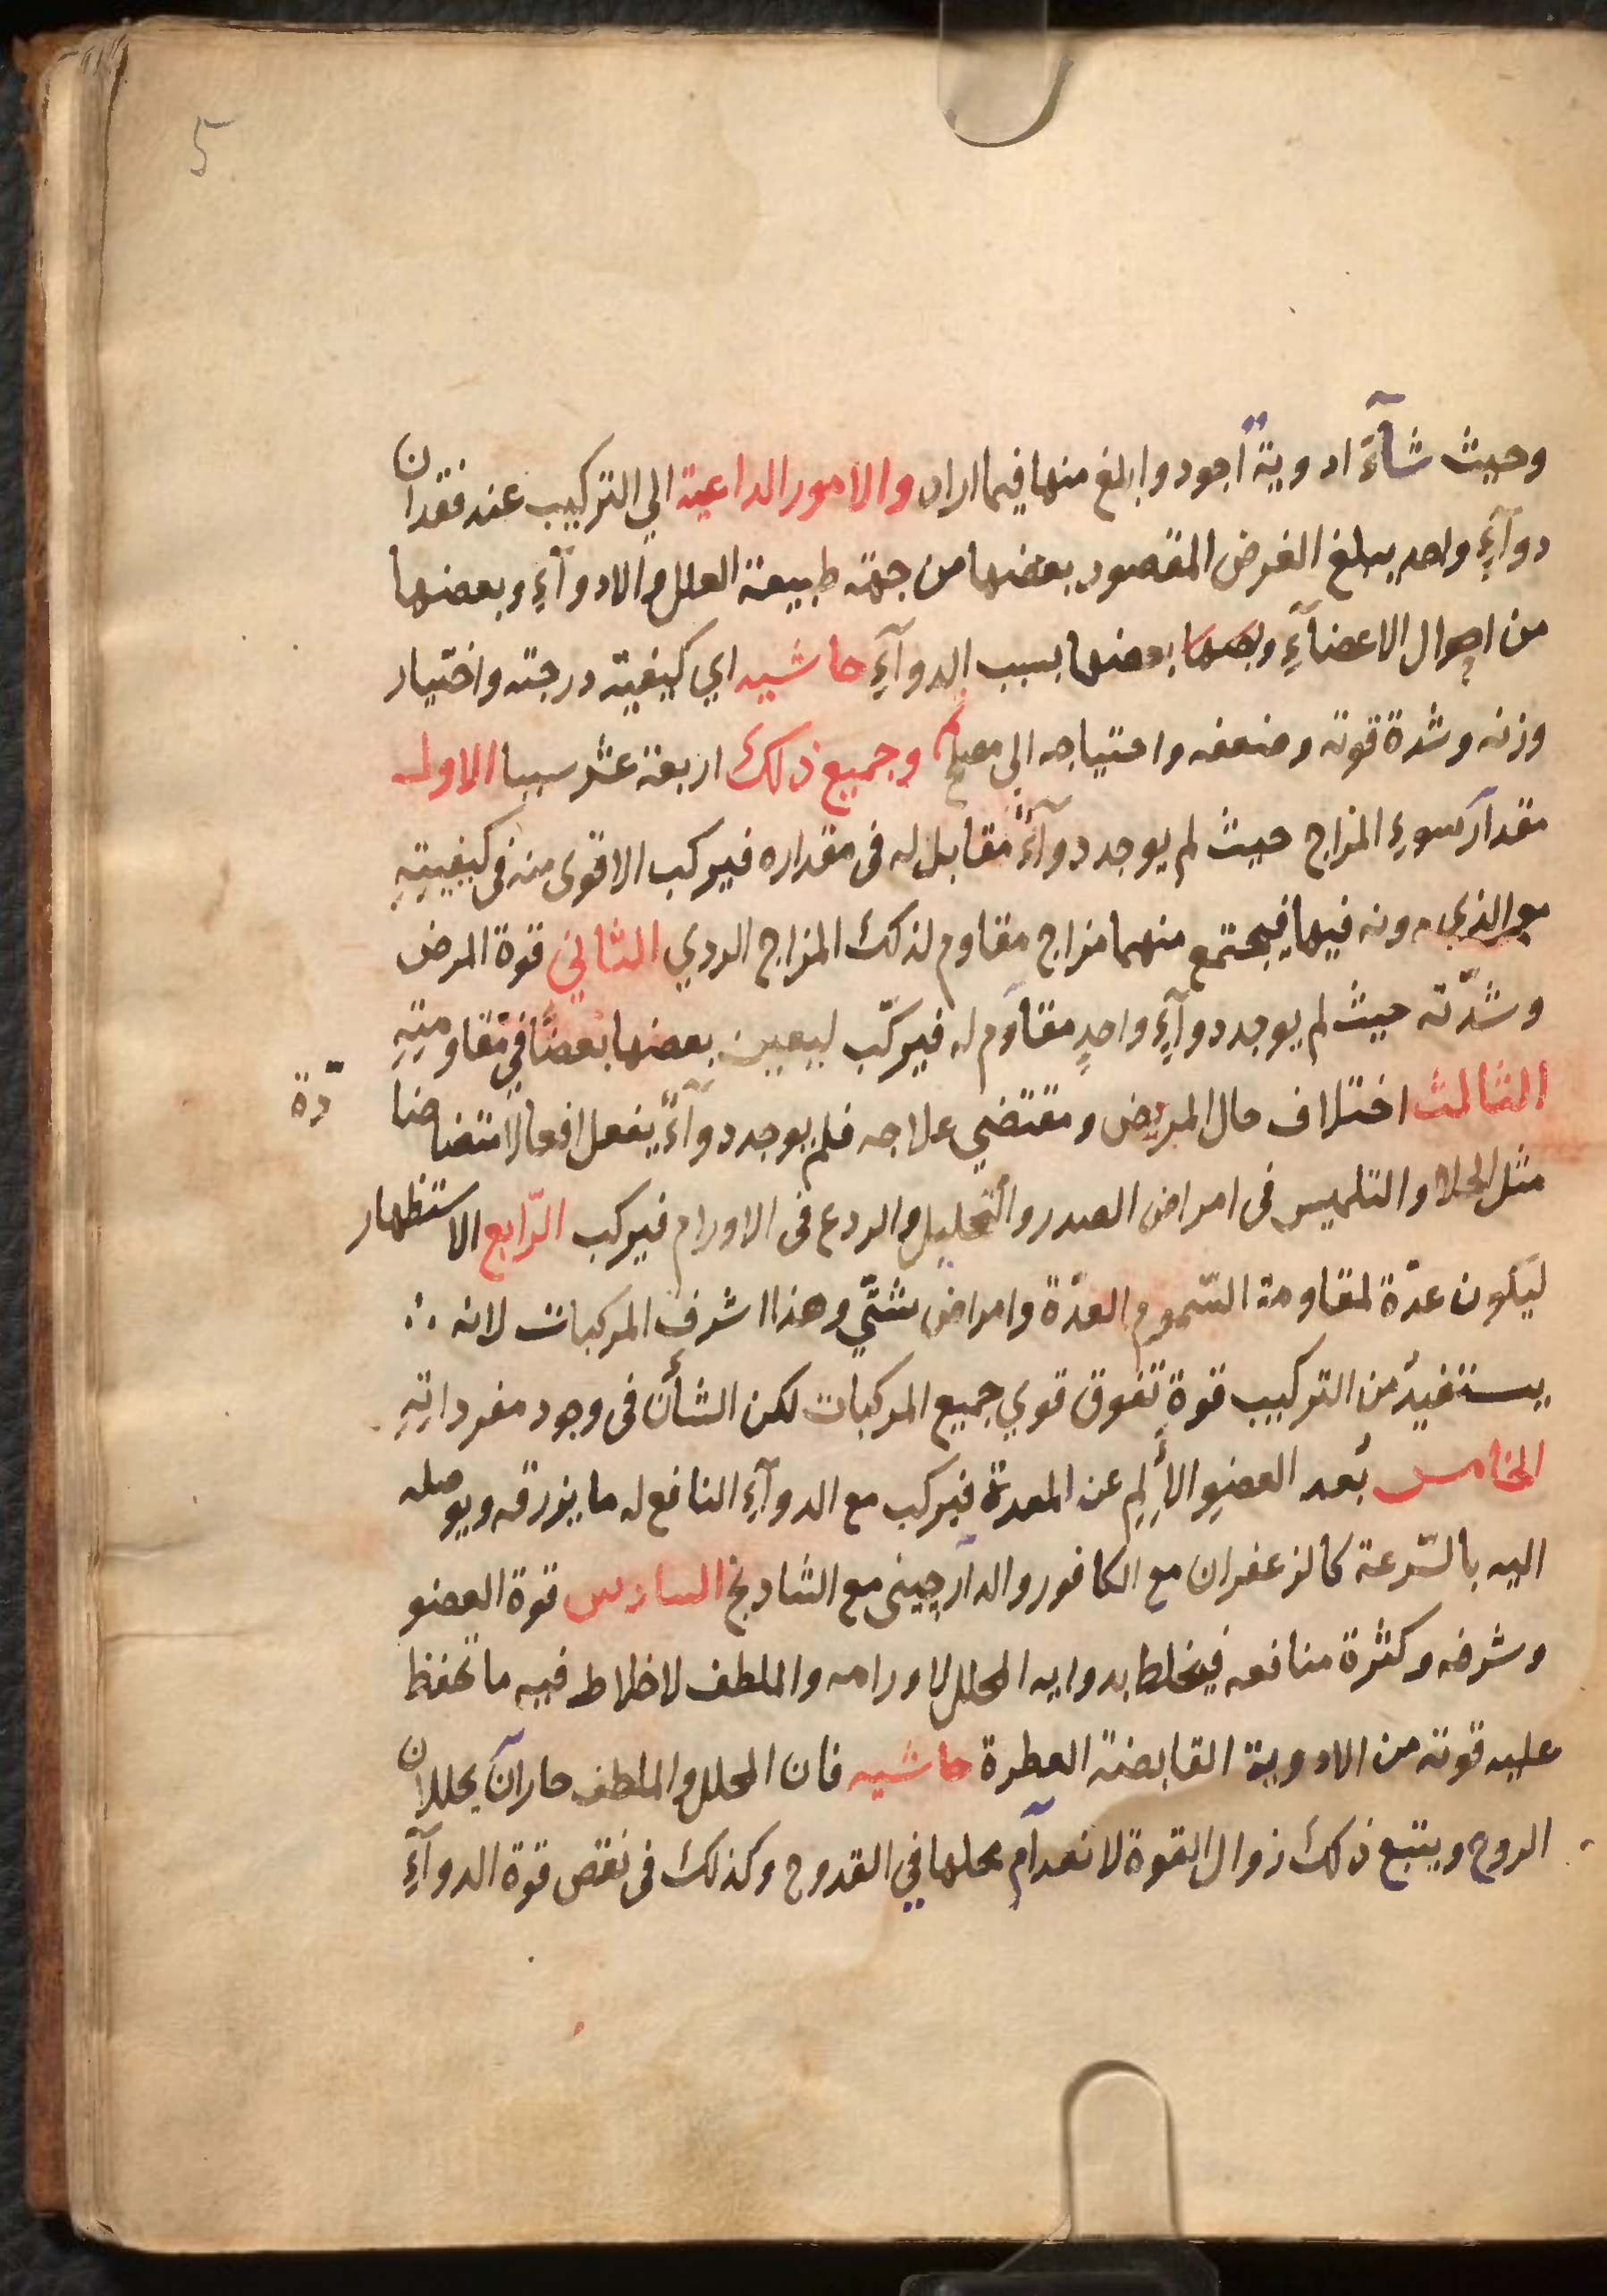 5
وحيث شآء ادوية أجود وابلغ منها فيما اراد والامور الداعية الي التركيب عند فقدان
دوآءٍ واحد يبلغ الغرض المقصود بعضها من جهة طبيعة العلل والادوآءِ وبعضها
من احوال الاعضآءِ وبعضها بعضها بسبب الدوآءِ حاشيه اي كيفيته درجته واختيار
وزنه وشدة قوته وضعفه واحتياجه الى مصلح وجميع ذلك اربعة عشر سببا الاول
مقدار سوءِ المزاج حيث لم يوجد دوآءٌ مقابل له فى مقداره فيركب الاقوى منه فى كيفيتِهِ
مع الذي دونه فيها فيجتمع منهما مزاج مقاوم لذلك المزاج الردي الثاني قوة المرض
وشدّته حيث لم يوجد دوآءٍ واحدٍ مقاوم له فيركّب ليعين بعضها بعضًا في مقاومتِهِ
الثالث اختلاف حال المريض ومقتضي علاجه فلم يوجد دوآءٌ يفعل افعالا متضا
دّة
مثل الجلا والتلميس فى امراض الصدر والتحليل والردع فى الاورام فيركب الرّابع الاستظهار
ليكون عدّة لمقاومة السّموم والعدّة وامراض شتّي وهذا اشرف المركبات لانه ∴
يستفيدُ من التركيب قوةٍ تفوق قوي جميع المركبات لكن الشأن فى وجود مفرداتِهِ
الخامس بُعد العضوِ الأَلِم عن المعدة فيركب مع الدوآءِ النافع له ما يزرقه ويوصله
اليه بالسّرعة كالزعفران مع الكافور والدآرچينى مع الشادنج السادس قوة العضو
وشرفه وكثرة منافعه فيخلط بدوايه المحلل لاورامه والملطف لاخلاط فيه ما تحفظ
عليه قوته من الادوية القابضة العطرة حاشيه فان المحلل والملطف حارآن يحللان
الروح ويتبع ذلك زوال القوة لانعدآم محلها في القدوح وكذلك فى نقص قوة الدوآءِ